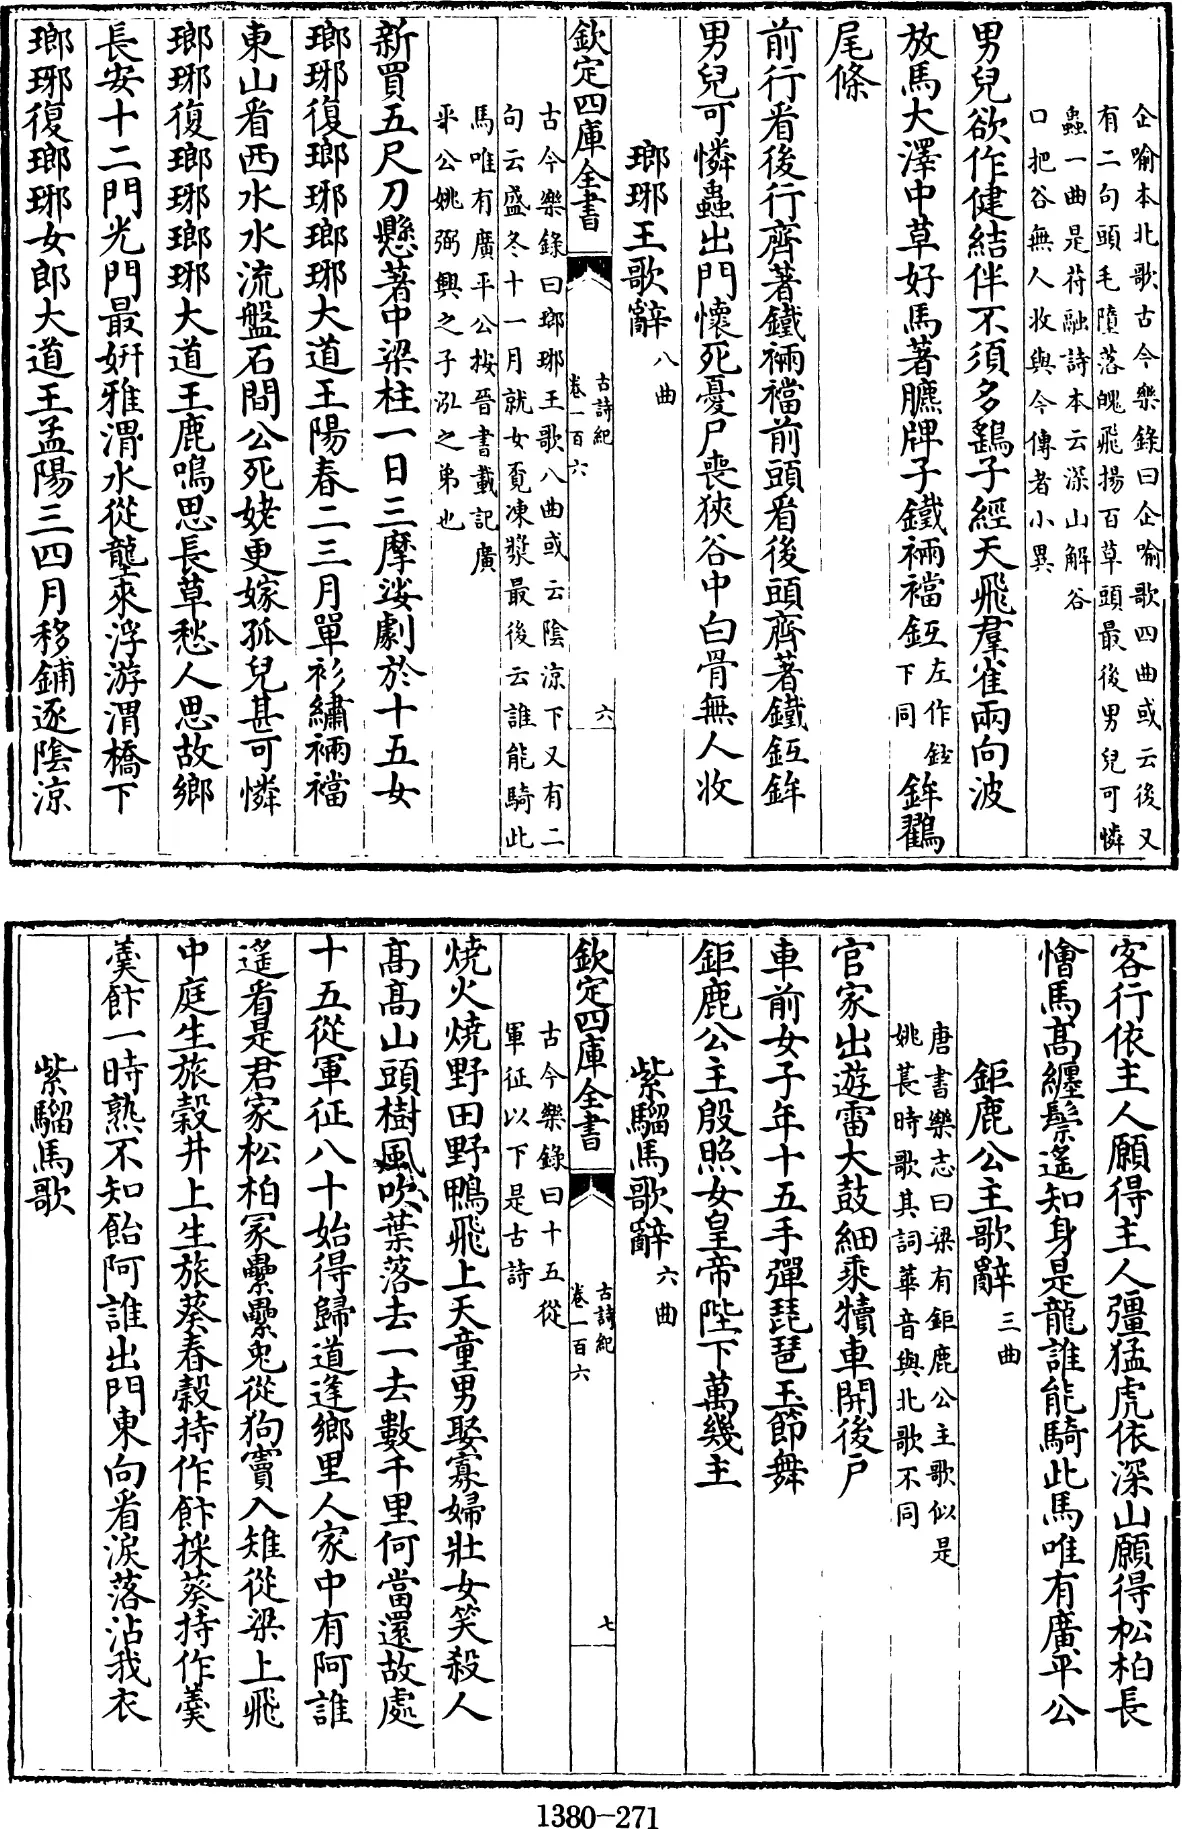 企喻本北歌古今樂錄曰企喻歌四曲或云後又
有二句頭毛墮落魄飛揚百草頭最後男兒可憐
蟲一曲是苻融詩本云深山解谷
口把谷無人收與今傳者小異
男兒欲作健結伴不須多鷂子經天飛羣雀兩向波
放馬大澤中草好馬著臕牌子鐵裲襠鉅左作𨥁下同鉾鸐
尾條
前行看後行齊著鐵裲襠前頭看後頭齊著鐵鉅鉾
男兒可憐蟲出門懷死憂尸喪狹谷中白骨無人收
瑯琊王歌辭八曲
欽定四庫全書
古詩紀
卷一百六
六
古今樂錄曰瑯琊王歌八曲或云陰涼下又有二
句云盛冬十一月就女覔凍漿最後云誰能騎此
馬唯有廣平公按晉書載記廣
平公姚弼興之子泓之弟也
新買五尺刀懸著中梁柱一日三摩娑劇於十五女
瑯琊復瑯琊瑯琊大道王陽春二三月單衫繡裲襠
東山看西水水流盤石間公死姥更嫁孤兒甚可憐
瑯琊復瑯琊瑯琊大道王鹿鳴思長草愁人思故鄉
長安十二門光門最妍雅渭水從壟來浮游渭橋下
瑯琊復瑯琊女郎大道王孟陽三四月移鋪逐陰涼
客行依主人願得主人彊猛虎依深山願得松柏長
懀馬高纏鬃遙知身是龍誰能騎此馬唯有廣平公
鉅鹿公主歌辭三曲
唐書樂志曰梁有鉅鹿公主歌似是
姚萇時歌其詞華音與北歌不同
官家出遊雷大鼓細乘犢車開後戶
車前女子年十五手彈琵琶玉節舞
鉅鹿公主殷照女皇帝陛下萬幾主
紫騮馬歌辭六曲
欽定四庫全書
古詩紀
卷一百六
七
古今樂錄曰十五從
軍征以下是古詩
燒火燒野田野鴨飛上天童男娶寡婦壯女笑殺人
高高山頭樹風吹葉落去一去數千里何當還故處
十五從軍征八十始得歸道逢鄉里人家中有阿誰
遙看是君家松柏冢纍纍兎從狗竇入雉從梁上飛
中庭生旅穀井上生旅葵舂穀持作飰採葵持作羹
羹飰一時熟不知飴阿誰出門東向看淚落沾我衣
紫騮馬歌
1380-271